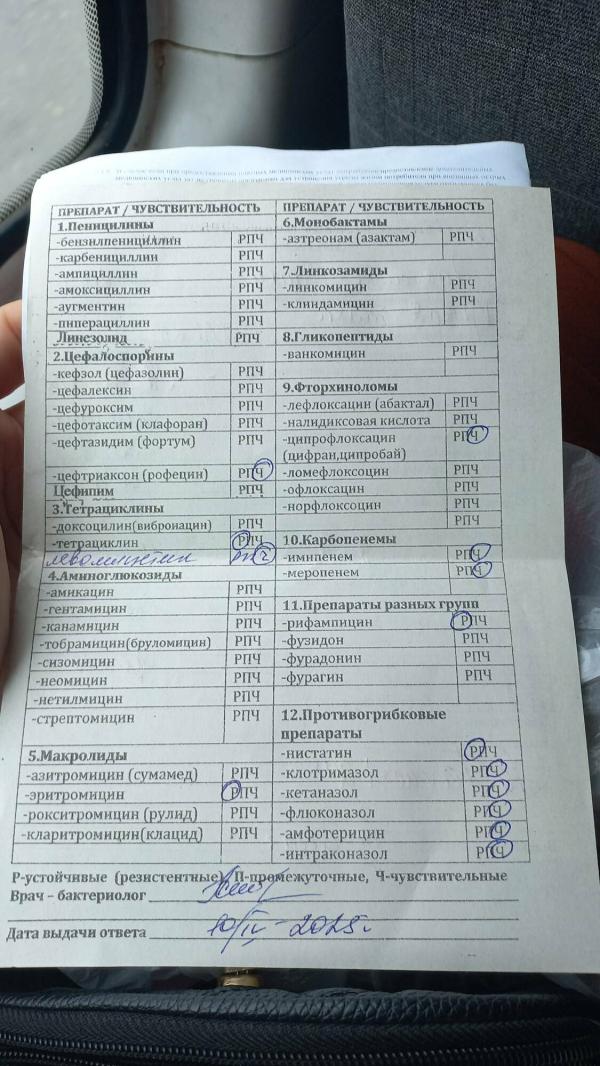 ПРЕПАРАТ / ЧУВСТВИТЕЛЬНОСТЬ
1.Пеницилины
-бензилпенициллин РПЧ
-карбенициллин РПЧ
-ампициллин РПЧ
-амоксициллин РПЧ
-аугментин РПЧ
-пиперациллин РПЧ
Линезолид РПЧ
2.Цефалоспорины
-кефзол (цефазолин) РПЧ
-цефалексин РПЧ
-цефуроксим РПЧ
-цефотаксим (клафоран) РПЧ
-цефтазидим (фортум) РПЧ
-цефтриаксон (рофецин) РПЧ
Цефипим РПЧ
3.Тетрациклины
-доксоцилин(виброиацин) РПЧ
-тетрациклин РПЧ
левомицетин РПЧ
4.Аминоглюкозиды
-амикацин РПЧ
-гентамицин РПЧ
-канамицин РПЧ
-тобрамицин(бруломицин) РПЧ
-сизомицин РПЧ
-неомицин РПЧ
-нетилмицин РПЧ
-стрептомицин РПЧ
5.Макролиды
-азитромицин (сумамед) РПЧ
-эритромицин РПЧ
-рокситромицин (рулид) РПЧ
-кларитромицин(клацид) РПЧ
ПРЕПАРАТ / ЧУВСТВИТЕЛЬНОСТЬ
6.Монобактамы
-азтреонам (азактам) РПЧ
7.Линкозамиды
-линкомицин РПЧ
-клиндамицин РПЧ
8.Гликопептиды
-ванкомицин РПЧ
9.Фторхиноломы
-лефлоксацин (абактал) РПЧ
-налидиксовая кислота РПЧ
-ципрофлоксацин РПЧ
(цифран,ципробай)
-ломефлоксоцин РПЧ
-офлоксацин РПЧ
-норфлоксоцин РПЧ
РПЧ
10.Карбопенемы
-имипенем РПЧ
-меропенем РПЧ
11.Препараты разных групп
-рифампицин РПЧ
-фузидон РПЧ
-фурадонин РПЧ
-фурагин РПЧ
12.Противогрибковые
препараты
-нистатин РПЧ
-клотримазол РПЧ
-кетаназол РПЧ
-флюконазол РПЧ
-амфотерицин РПЧ
-интраконазол РПЧ
Р-устойчивые (резистентные), П-промежуточные, Ч-чувствительные
Врач – бактериолог
Дата выдачи ответа 10/IV - 2025г.